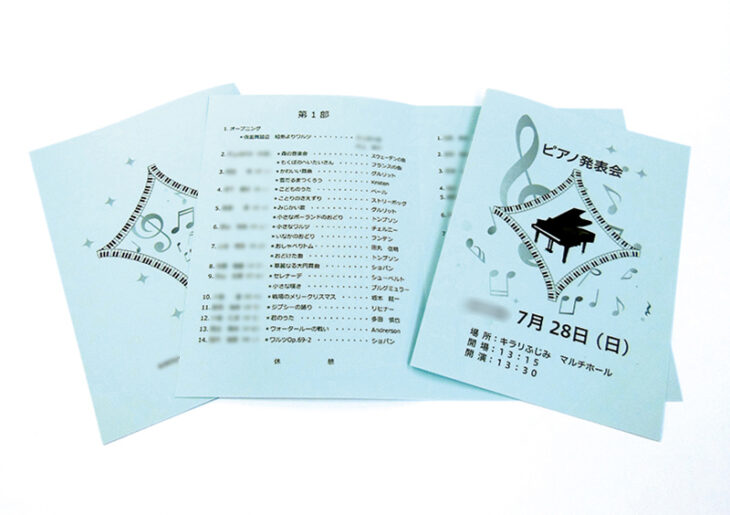 第1部
1. オープニング
2. ●森の音楽会 ・・・・・・・・ スウェーデンの曲
●もくばのへいたいさん ・・・・・・・・ フランスの曲
3. ●かわいい舞曲 ・・・・・・・・ グルリット
●雪だるまつくろう ・・・・・・・・ Kristen
4. ●こどものうた ・・・・・・・・ ベール
●ことりのさえずり ・・・・・・・・ ストリーボッグ
5. ●みじかい歌 ・・・・・・・・ グルリット
●小さなポーランドのおどり ・・・・・・・・ トンプソン
6. ●小さなワルツ ・・・・・・・・ チェルニー
●いなかのおどり ・・・・・・・・ フンテン
7. ●おしゃべりトム ・・・・・・・・ 田丸 信明
●おどけた曲 ・・・・・・・・ トンプソン
8. ●華麗なる大円舞曲 ・・・・・・・・ ショパン
9. ●セレナーデ ・・・・・・・・ シューベルト
●小さな嘆き ・・・・・・・・ ブルグミュラー
10. ●戦場のメリークリスマス ・・・・・・・・ 坂本 龍一
11. ●ジプシーの踊り ・・・・・・・・ リヒナー
12. ●君のうた ・・・・・・・・ 多田
13. ●ウォータールーの戦い ・・・・・・・・ Andnerson
14. ●ワルツOp.69-2 ・・・・・・・・ ショパン
休 憩
1.
2.
3.
ピアノ発表会
7月 28日(日)
場 所:キラリふじみ マルチホール
開 場:13:15
開 演:13:30